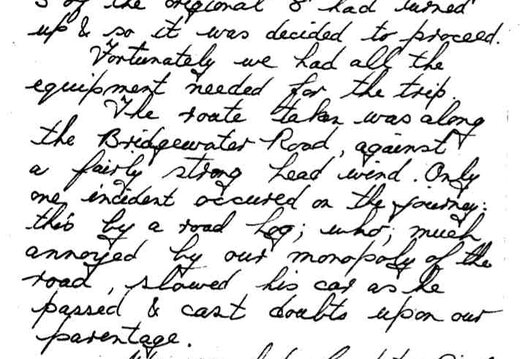 5 of the original 8 had turned
up & so it was decided to proceed.
Fortunately we had all the
equipment needed for the trip.
The route taken was along
the Bridgewater Road, against
a fairly strong head wind. Only
one incident occured on the journey:
this by a road hog; who, much
annoyed by our monopoly of the
road, slowed his car as he
passed & cast doubts upon our
parentage.